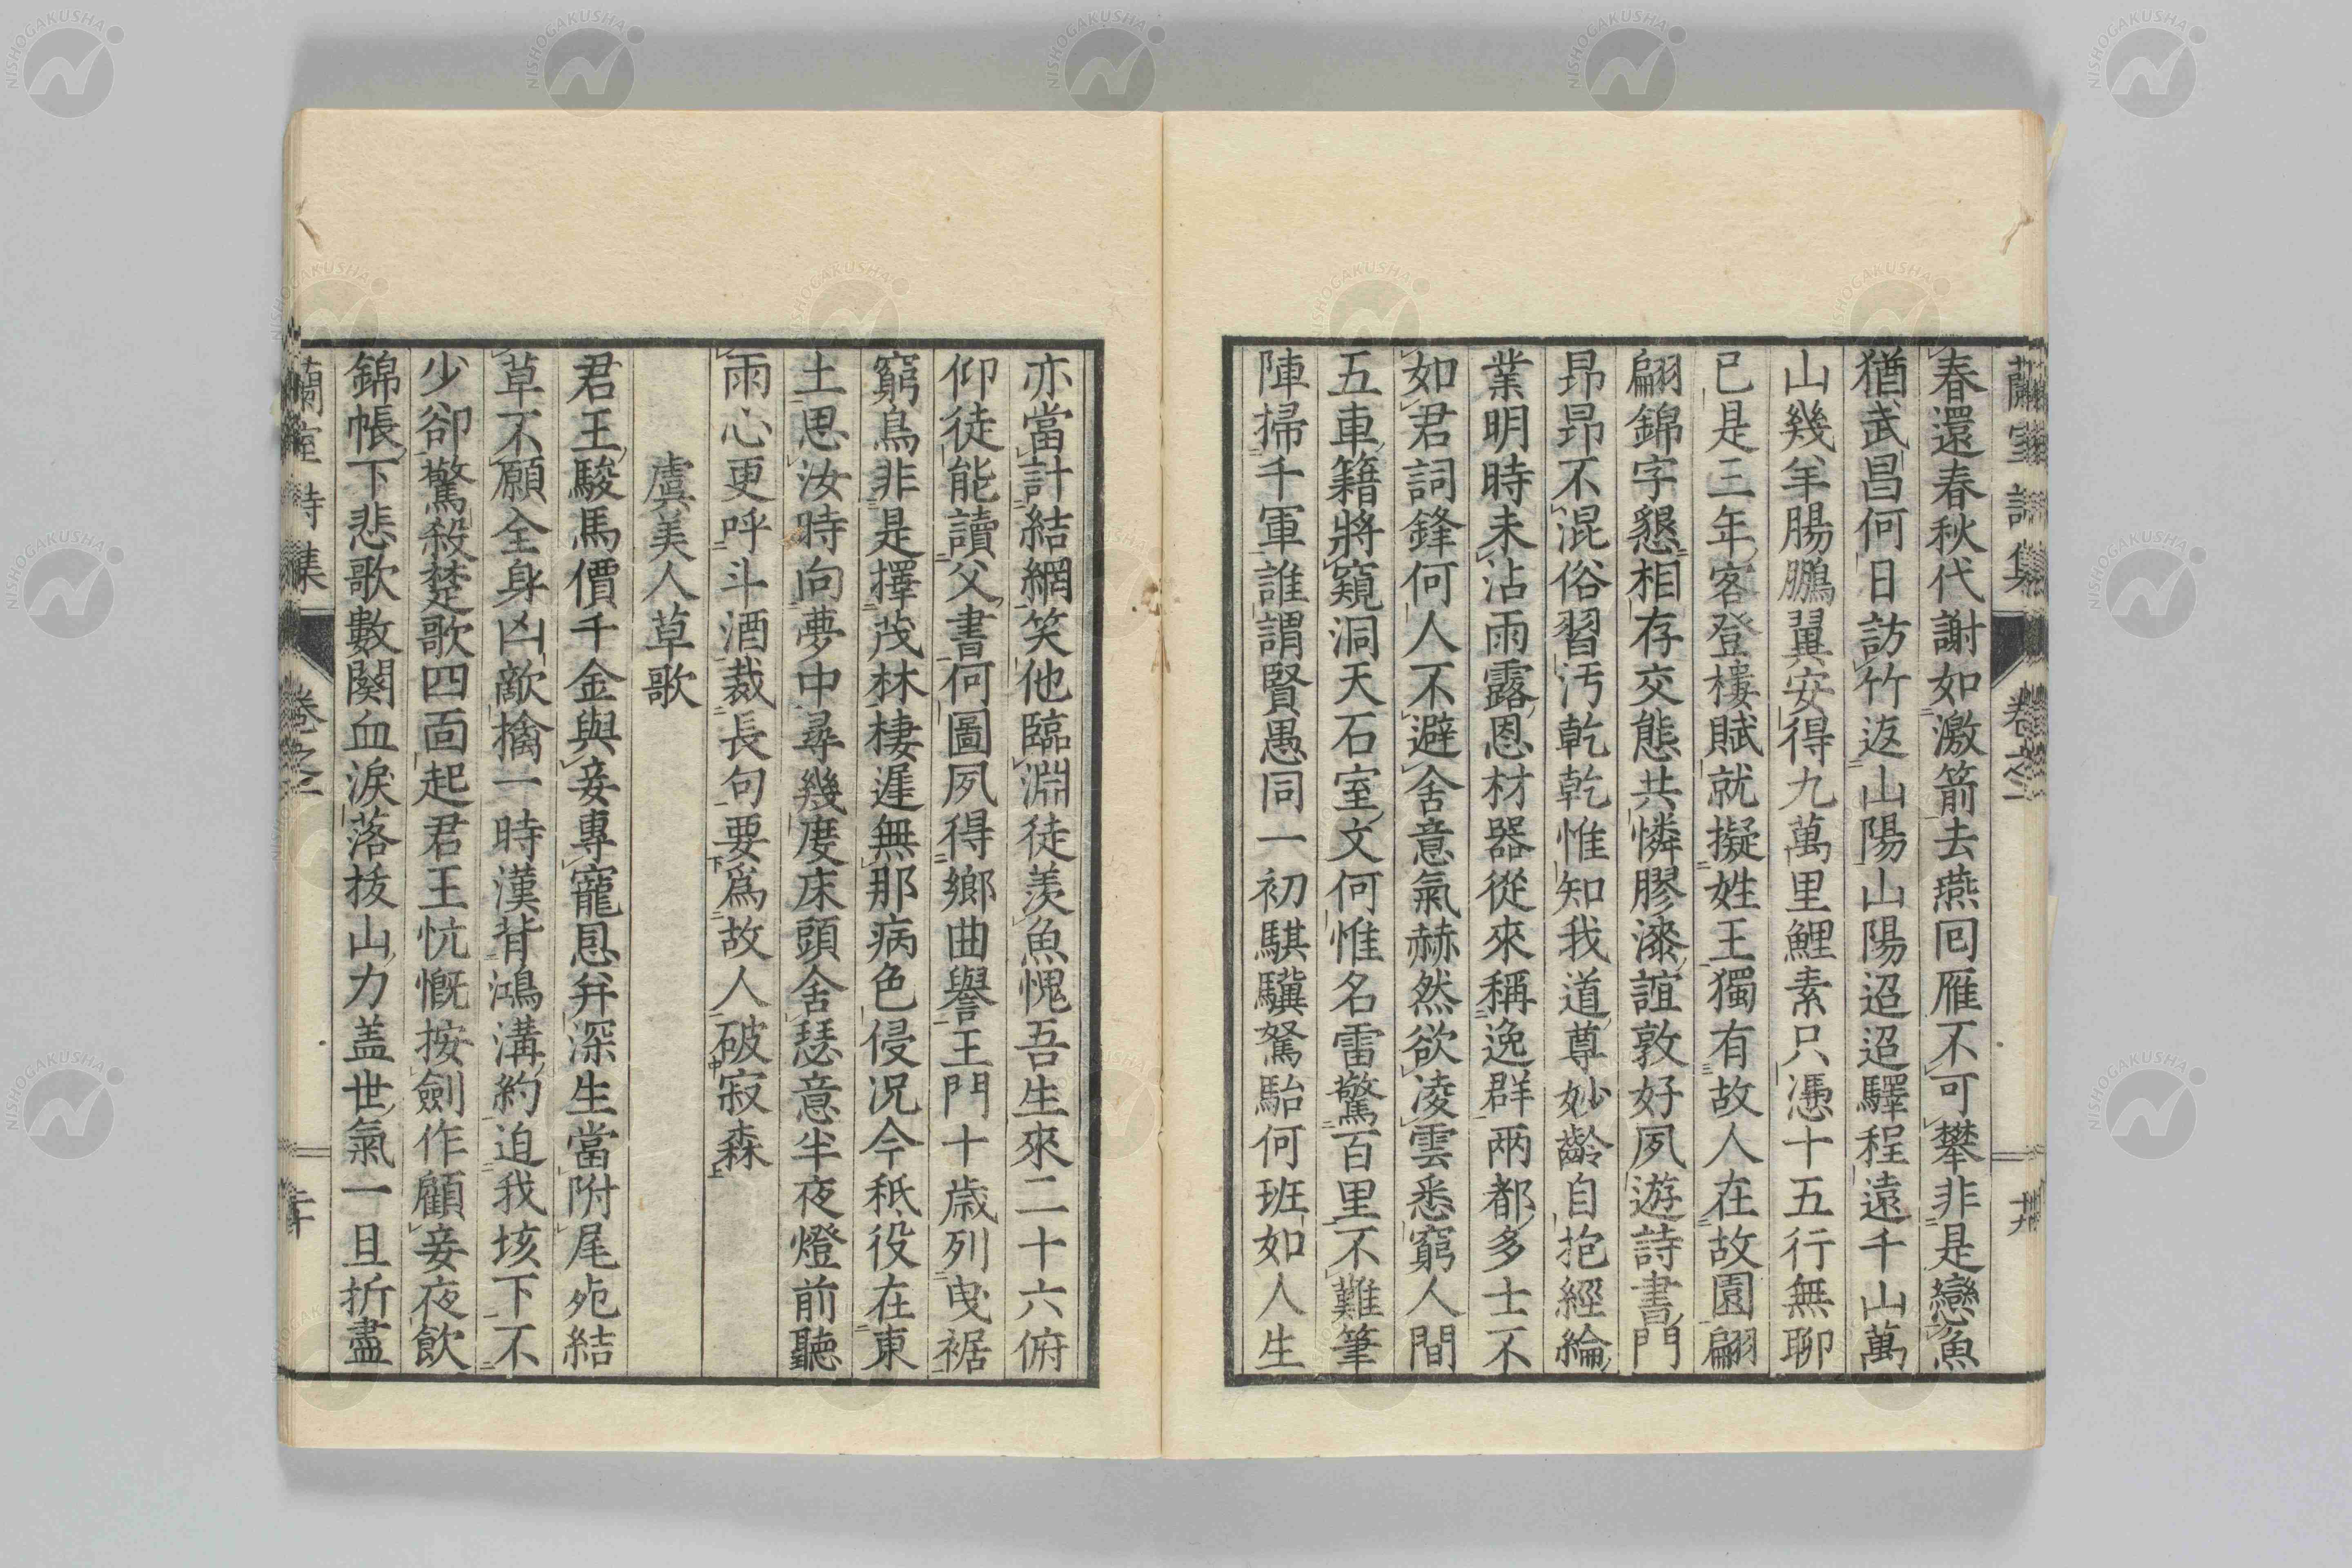 蘭室詩集 卷之一
春還春秋代謝如激箭去燕回雁不可攀非是戀魚
猶武昌何日訪竹返山陽山陽迢迢驛程遠千山萬
山幾羊腸鵬翼安得九萬里鯉素只憑十五行無聊
已是三年客登樓賦就擬姓王獨有故人在故園翩
翩錦字懇相存交態共憐膠漆誼敦好夙遊詩書門
昻昻不混俗習汚乾乾惟知我道尊妙齡自抱經綸
業明時未沾雨露恩材器從來稱逸群兩都多士不
如君詞鋒何人不避舍意氣赫然欲凌雲悉窮人間
五車籍將窺洞天石室文何惟名雷驚百里不難筆
陣掃千軍誰謂賢愚同一初騏驥駑駘何班如人生
亦當計結網笑他臨淵徒羨魚愧吾生來二十六俯
仰徒能讀父書何圖夙得鄉曲譽王門十歲列曳裾
窮鳥非是擇茂林棲遲無那病色侵况今秪役在東
土思汝時向夢中尋幾度床頭舍瑟意半夜燈前聽
雨心更呼斗酒裁長句要爲故人破寂森
虞美人草歌
君王駿馬價千金與妾專寵恩弁深生當附尾死結
草不願全身凶敵擒一時漢背鴻溝約迫我垓下不
少卻驚殺楚歌四面起君王忼慨按劍作顧妾夜飮
錦帳下悲歌數闋血淚落拔山力盖世氣一旦折盡
蘭室詩集 卷之一
NISHOGAKUSHA